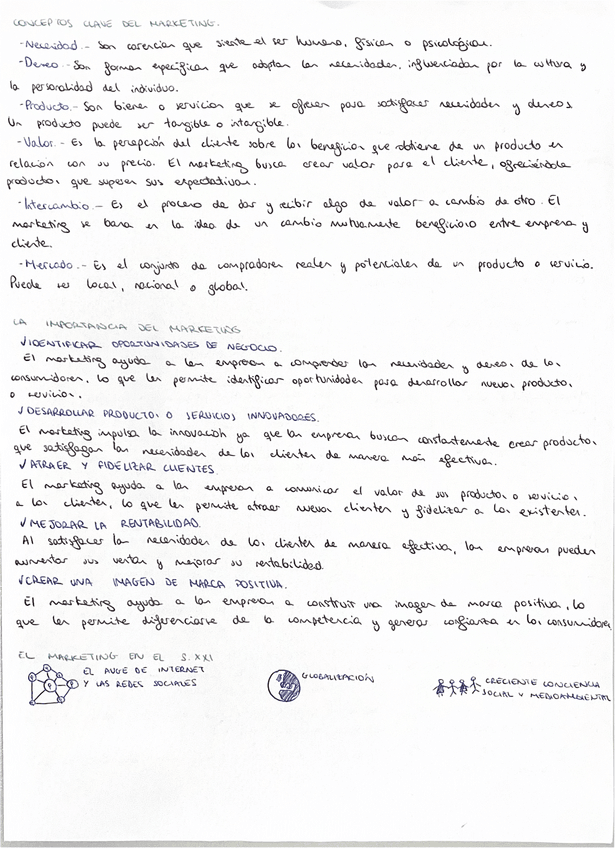 CONCEPTOS CLAVE DEL MARKETING.
-Necesidad.- Son carencias que siente el ser humano, físicas o psicológicas.
-Deseo.- Son formas específicas que adoptan las necesidades, influenciadas por la cultura y
la personalidad del individuo.
-Producto.- Son bienes o servicios que se ofrecen para satisfacer necesidades y deseos
Un producto puede ser tangible o intangible.
-Valor.- Es la percepción del cliente sobre los beneficios que obtiene de un producto en
relación con su precio. El marketing busca crear valor para el cliente, ofreciéndole
productos que superen sus expectativas.
-Intercambio.- Es el proceso de dar y recibir algo de valor a cambio de otro. El
marketing se basa en la idea de un cambio mutuamente beneficioso entre empresa y
cliente.
-Mercado.- Es el conjunto de compradores reales y potenciales de un producto o servicio.
Puede ser local, nacional o global.
LA IMPORTANCIA DEL MARKETING
✓IDENTIFICAR OPORTUNIDADES DE NEGOCIO.
El marketing ayuda a las empresas a comprender las necesidades y deseos de los
consumidores, lo que les permite identificar oportunidades para desarrollar nuevos productos
o servicios.
✓DESARROLLAR PRODUCTOS O SERVICIOS INNOVADORES.
El marketing impulsa la innovación ya que las empresas buscan constantemente crear productos
que satisfagan las necesidades de los clientes de manera más efectiva.
✓ATRAER Y FIDELIZAR CLIENTES.
El marketing ayuda a las empresas a comunicar el valor de sus productos o servicios
a los clientes, lo que les permite atraer nuevos clientes y fidelizar a los existentes.
✓MEJORAR LA RENTABILIDAD.
Al satisfacer las necesidades de los clientes de manera efectiva, las empresas pueden
aumentar sus ventas y mejorar su rentabilidad.
✓CREAR UNA IMAGEN DE MARCA POSITIVA.
El marketing ayuda a las empresas a construir una imagen de marca positiva, lo
que les permite diferenciarse de la competencia y generar confianza en los consumidores.
EL MARKETING EN EL S.XXI
EL AUGE DE INTERNET
Y LAS REDES SOCIALES
GLOBALIZACIÓN
CRECIENTE CONCIENCIA
SOCIAL Y MEDIOAMBIENTAL